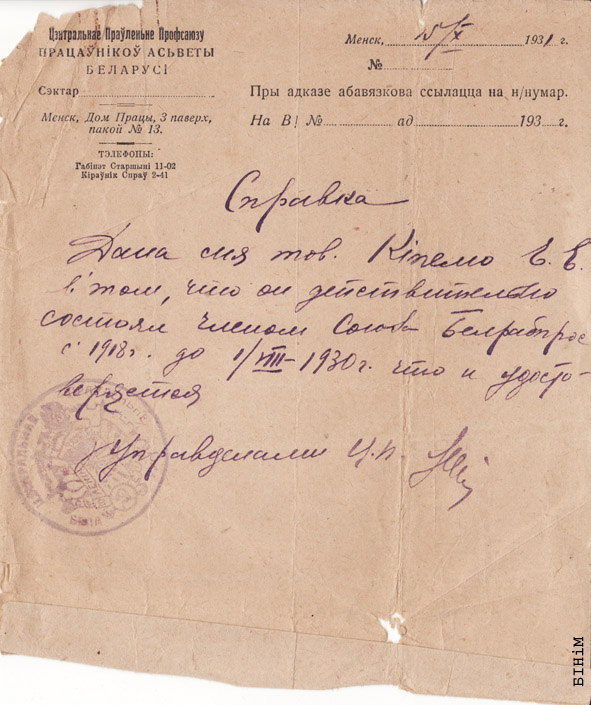 Цэнтральнае Праўленьне Профсаюзу
ПРАЦАЎНІКОЎ АСЬВЕТЫ
БЕЛАРУСІ
Сэктар
Менск, Дом Працы, 3 паверх,
пакой № 13.
ТЭЛЕФОНЫ:
Габінэт Старшыні 11-02
Кіраўнік Спраў 2-41
Менск, 15/X 1931 г.
№
Пры адказе абавязкова ссылацца на н/нумар.
На В/ № ад 193 г.
Справка
Дана сия тов. Кіпелю Е. Е.
в том, что он действительно
состоял членом Союза Белработпрос
с 1918 г. до 1/VIII-1930 г. что и удосто-
веряется
Управделами Ц.П.
БІНіМ